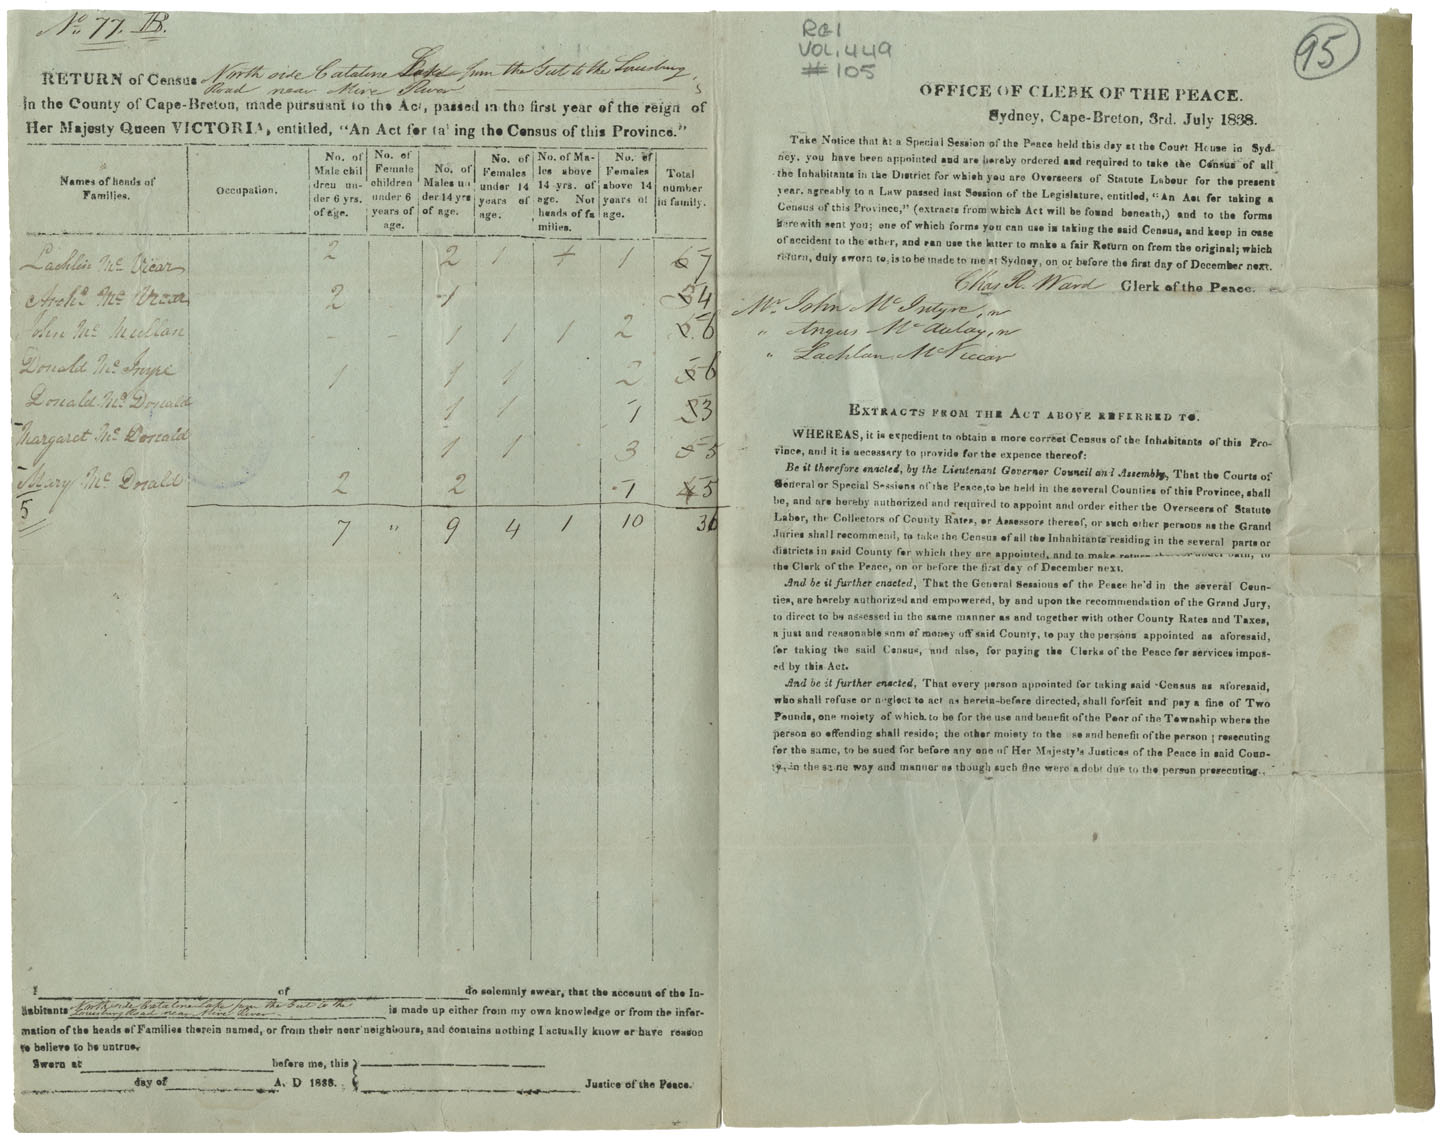 No. 77. B.
RETURN of Census North side Cataline Lake from the Gut to the Louisburg
Road near Mire River
in the County of Cape-Breton, made pursuant to the Act, passed in the first year of the reign of
Her Majesty Queen VICTORIA, entitled, "An Act for taking the Census of this Province."
Names of heads of Families. Occupation. No. of Male children under 6 yrs. of age. No. of Female children under 6 years of age. No. of Males under 14 yrs of age. No. of Females under 14 years of age. No. of Males above 14 yrs. of age. Not heads of families. No. of Females above 14 years of age. Total number in family.
Lachlin Mc Vicar 2 2 1 + 1 7
Archd. Mc Vicar 2 1 4
John Mc Mullan - - 1 1 1 2 6
Donald Mc 1 1 1 2 6
Donald Mc Donald 1 1 1 3
Margaret Mc Donald 1 1 3 5
Mary Mc Donald 2 2 1 5
5
7 " 9 4 1 10 36
I of do solemnly swear, that the account of the In-
habitants North side Cataline Lake from the Gut to the
Louisburg Road near Mire River is made up either from my own knowledge or from the infor-
mation of the heads of Families therein named, or from their near neighbours, and contains nothing I actually know or have reason
to believe to be untrue.
Sworn at before me, this }
day of A. D 1838. Justice of the Peace.
RG1
VOL. 449
# 105
95
OFFICE OF CLERK OF THE PEACE.
Sydney, Cape-Breton, 3rd. July 1838.
Take Notice that at a Special Session of the Peace held this day at the Court House in Syd-
ney, you have been appointed and are hereby ordered and required to take the Census of all
the Inhabitants in the District for which you are Overseers of Statute Labour for the present
year, agreably to a Law passed last Session of the Legislature, entitled, "An Act for taking a
Census of this Province," (extracts from which Act will be found beneath,) and to the forms
herewith sent you; one of which forms you can use in taking the said Census, and keep in case
of accident to the other, and can use the latter to make a fair Return on from the original; which
return, duly sworn to, is to be made to me at Sydney, on or before the first day of December next.
Chas R. Ward Clerk of the Peace.
Mr. John Mc Intyre,
" Angus Mc Aulay,
" Lachlan Mc Viccar
EXTRACTS FROM THE ACT ABOVE REFERRED TO.
WHEREAS, it is expedient to obtain a more correct Census of the Inhabitants of this Pro-
vince, and it is necessary to provide for the expence thereof:
Be it therefore enacted, by the Lieutenant Governor Council and Assembly, That the Courts of
General or Special Sessions of the Peace, to be held in the several Counties of this Province, shall
be, and are hereby authorized and required to appoint and order either the Overseers of Statute
Labor, the Collectors of County Rates, or Assessors thereof, or such other persons as the Grand
Juries shall recommend, to take the Census of all the Inhabitants residing in the several parts or
districts in said County for which they are appointed, and to make return thereof under oath, to
the Clerk of the Peace, on or before the first day of December next.
And be it further enacted, That the General Sessions of the Peace he'd in the several Coun-
ties, are hereby authorized and empowered, by and upon the recommendation of the Grand Jury,
to direct to be assessed in the same manner as and together with other County Rates and Taxes,
a just and reasonable sum of money off said County, to pay the persons appointed as aforesaid,
for taking the said Census, and also, for paying the Clerks of the Peace for services impos-
ed by this Act.
And be it further enacted, That every person appointed for taking said Census as aforesaid,
who shall refuse or neglect to act as herein-before directed, shall forfeit and pay a fine of Two
Pounds, one moiety of which to be for the use and benefit of the Poor of the Township where the
person so offending shall reside; the other moiety to the use and benefit of the person prosecuting
for the same, to be sued for before any one of Her Majesty's Justices of the Peace in said Coun-
ty, in the same way and manner as though such fine were a debt due to the person prosecuting.